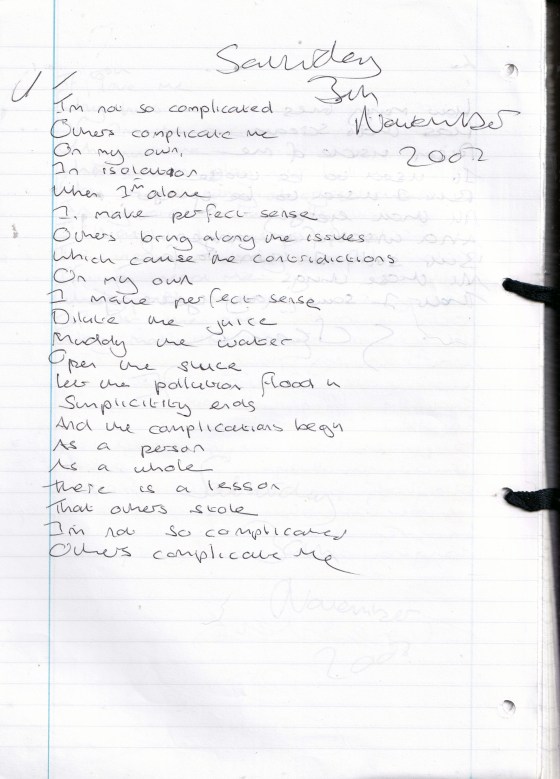 Saturday
3rd
November
2007
I'm not so complicated
Others complicate me
On my own,
In isolation
When I'm alone
I make perfect sense
Others bring along the issues
Which cause the contridictions
On my own
I make perfect sense
Dilute the juice
Muddy the water
Open the sluice
Let the pollution flood in
Simplicitity ends
And the complications begin
As a person
As a whole
There is a lesson
That others stole
I'm not so complicated
Others complicate me